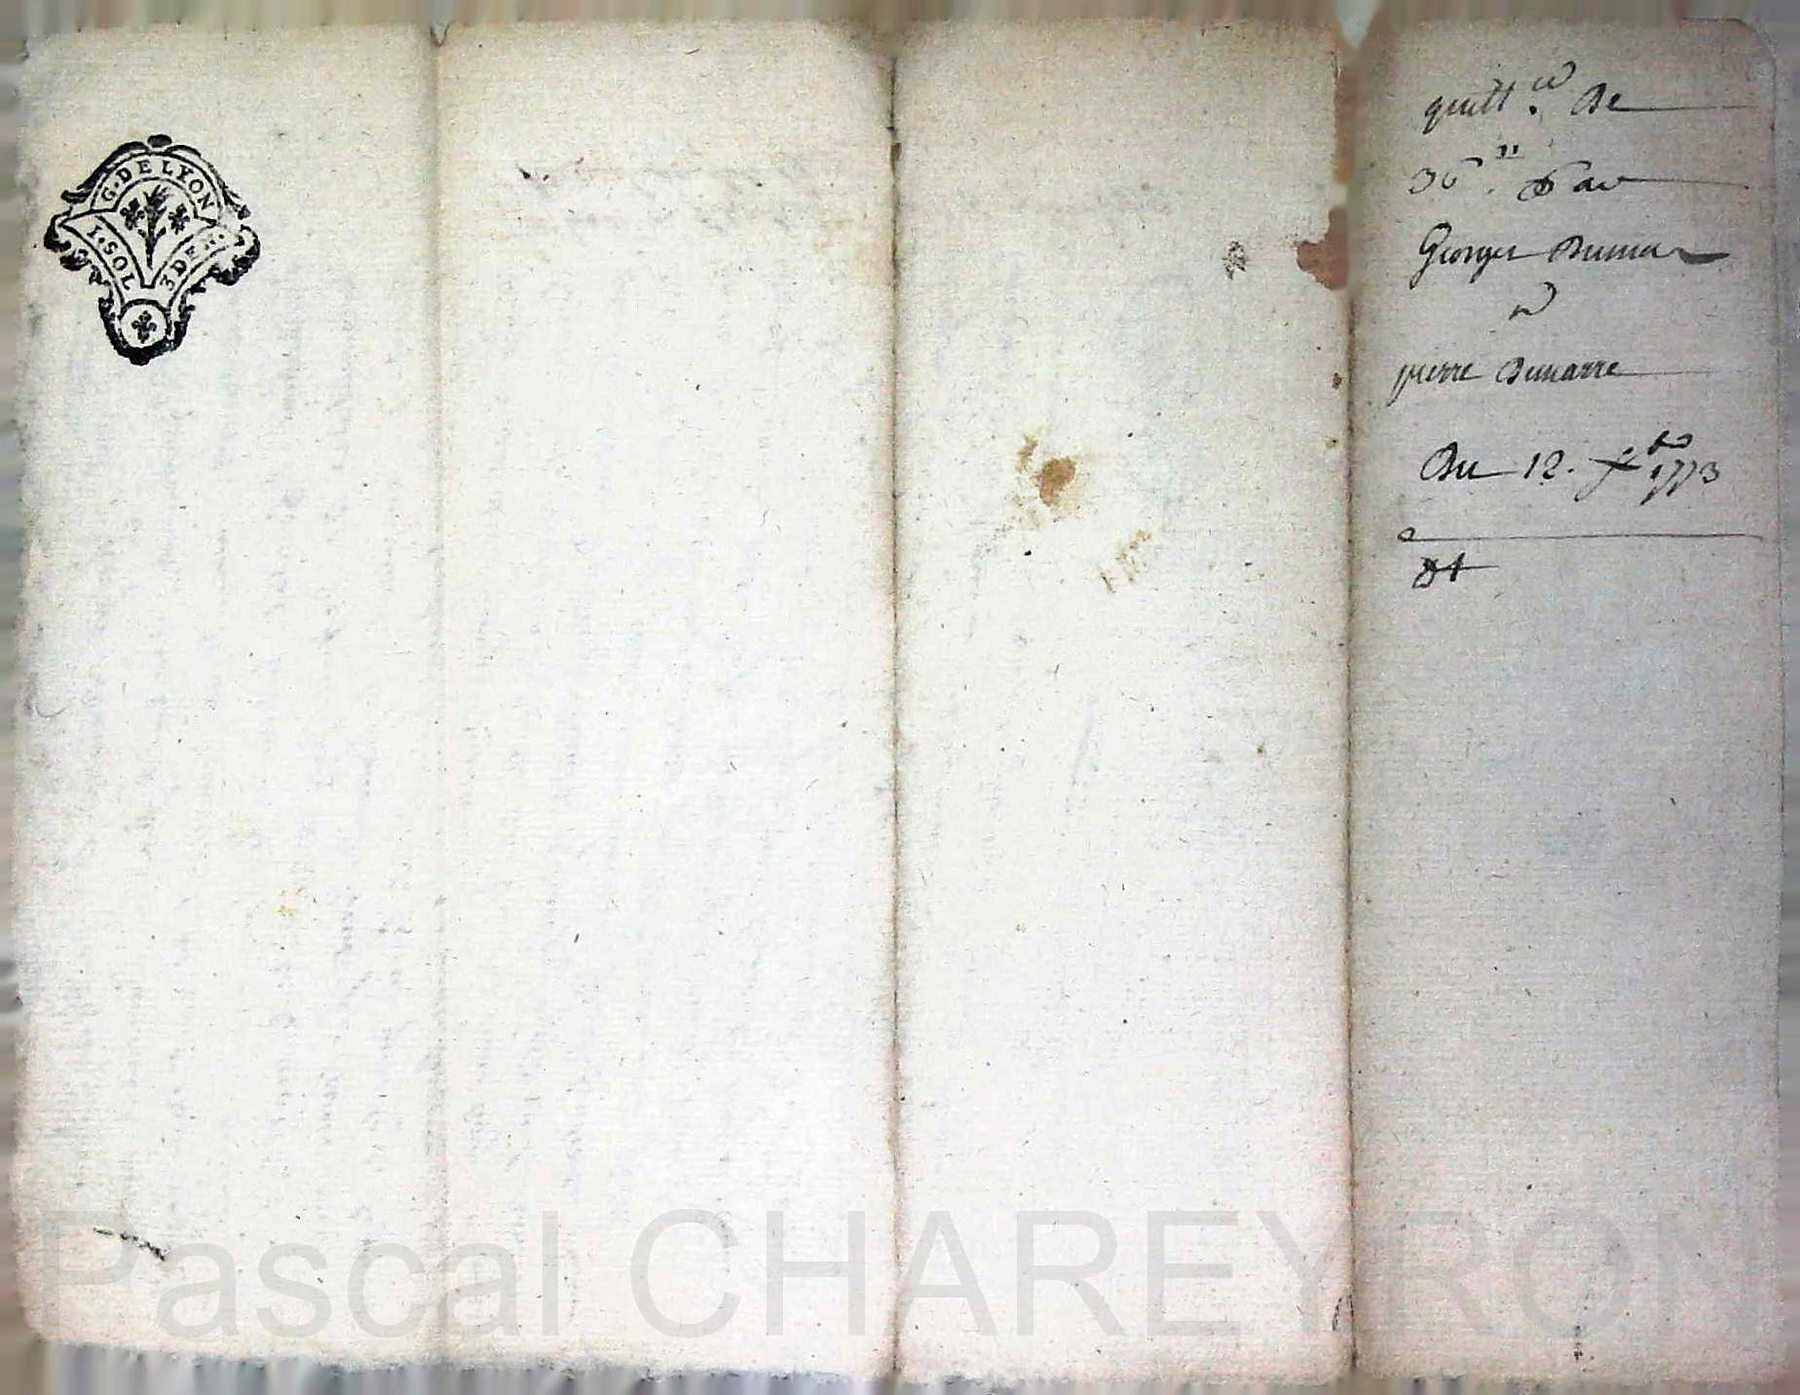 G. DE LYON
1. SOL 3 DER.
quitt.ce De
36.ll par
Georges Dumas
pierre Dumarre
Du 12. xbre 1773
Pascal CHAREYRON